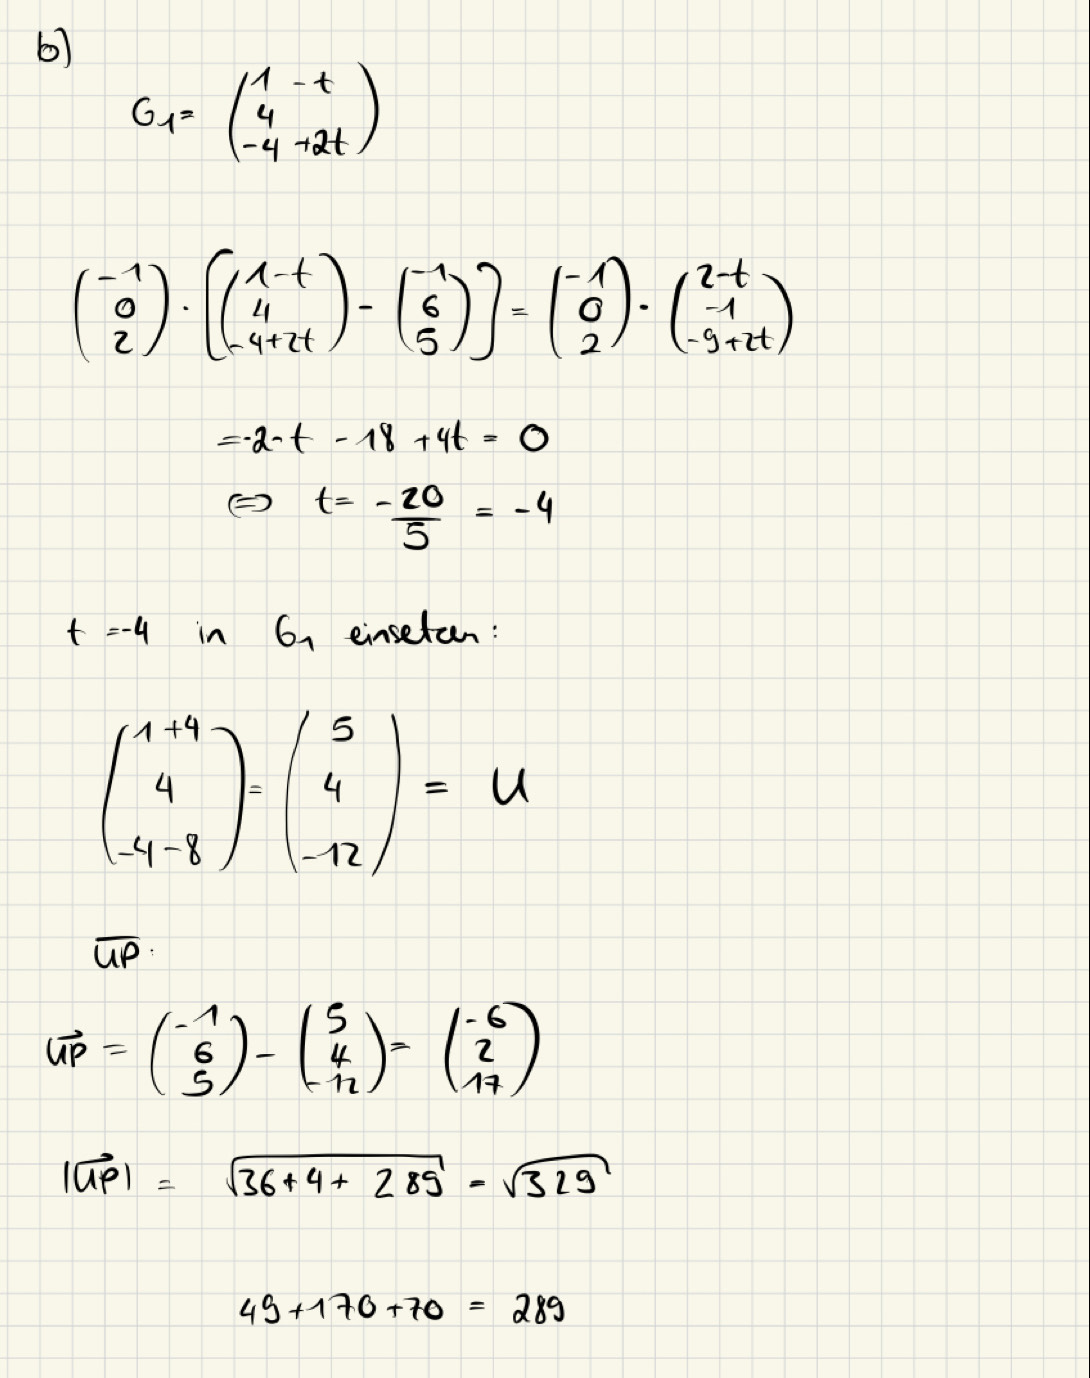 b)
G₁ = (1 - t / 4 / -4 + 2t)
(-1 / 0 / 2) · [(1-t / 4 / -4+2t) - (-1 / 6 / 5)] = (-1 / 0 / 2) · (2-t / -1 / -9+2t)
= -2 - t - 18 + 4t = 0
⇔ t = -20/5 = -4
t = -4 in G₁ einsetzen:
(1+4 / 4 / -4-8) = (5 / 4 / -12) = U
UP:
UP = (-1 / 6 / 5) - (5 / 4 / -12) = (-6 / 2 / 17)
|UP| = √36+4+ 289 = √329
49+170+70 = 289